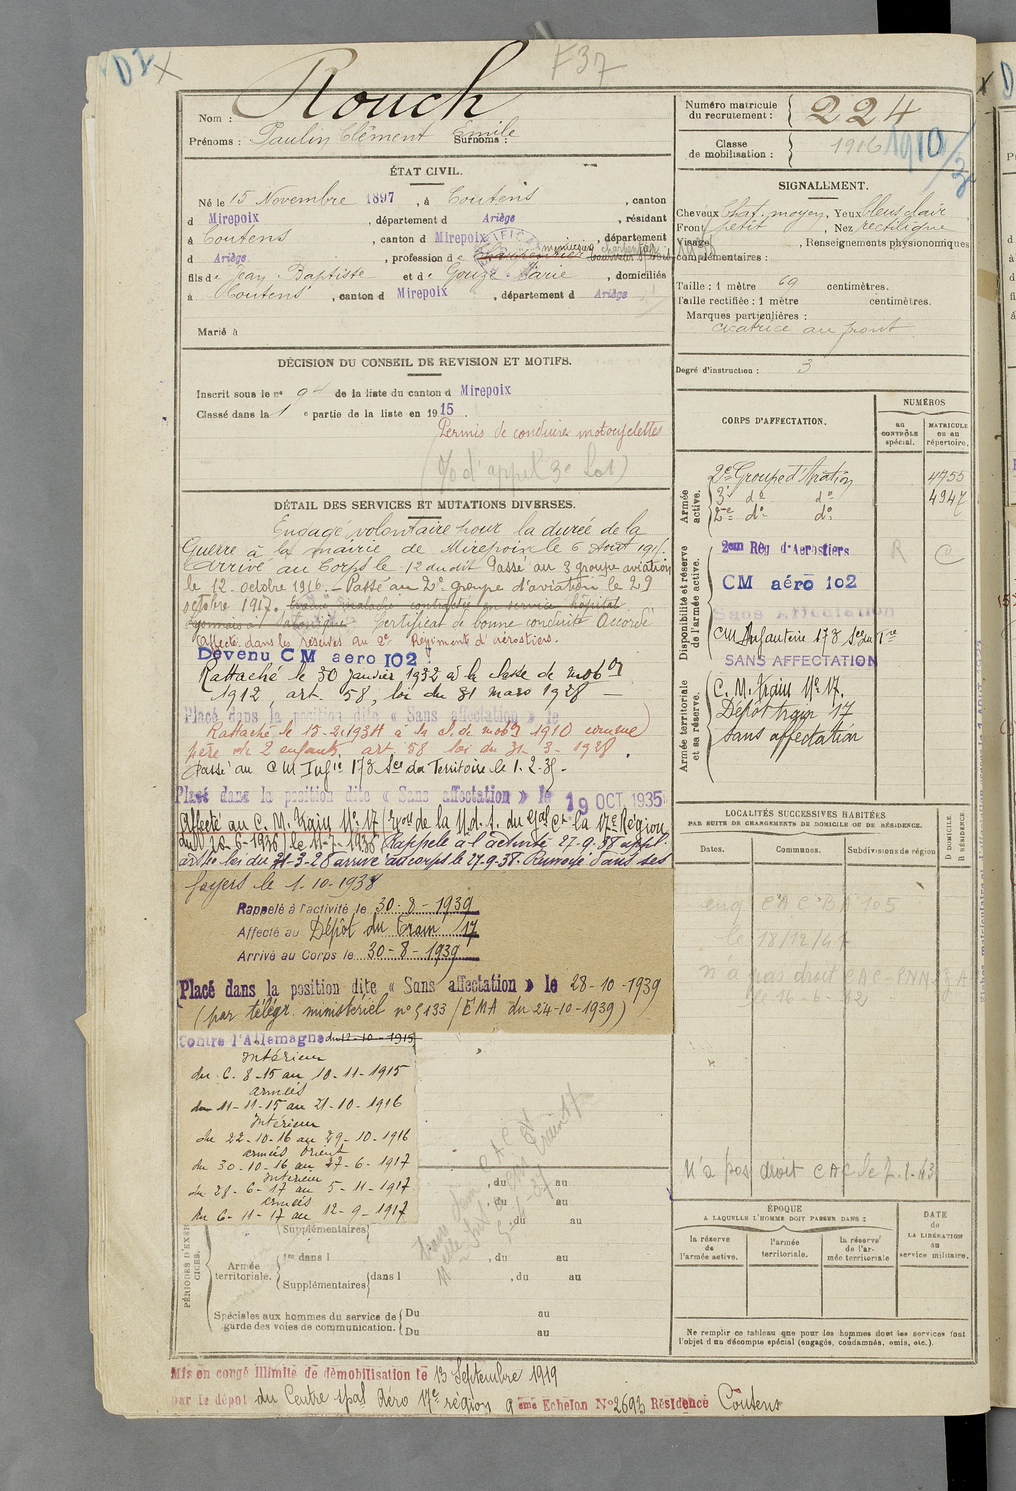 D2
F37
Nom : Rouch
Prénoms : Paulin Clément Emile Surnoms :
ÉTAT CIVIL.
Né le 15 Novembre 1897, à Coutens, canton
d Mirepoix, département d Ariège, résidant
à Coutens, canton d Mirepoix, département
d Ariège, profession de Charpentier menuisier
fils de Jean-Baptiste et de Gouze Marie, domiciliés
à Coutens, canton d Mirepoix, département d Ariège
Marié à
DÉCISION DU CONSEIL DE REVISION ET MOTIFS.
Inscrit sous le n° de la liste du canton d Mirepoix
Classé dans la 1e partie de la liste en 1915.
Permis de conduire motocyclettes
(% d'appel 3e Lot)
DÉTAIL DES SERVICES ET MUTATIONS DIVERSES.
Engagé volontaire pour la durée de la
Guerre à la mairie de Mirepoix le 6 Août 1915.
Arrivé au Corps le 12 au dit Passé au 3 groupe aviation
le 12 octobre 1916. - Passé au 2e groupe d'aviation le 29
octobre 1917. Evacué malade en service hôpital
Certificat de bonne conduite Accordé
Affecté dans les réserves au 2e Régiment d'aérostiers.
Devenu CM aero 102
Rattaché le 30 janvier 1932 à la classe de mobon
1912, art. 58, loi du 31 mars 1928 —
Placé dans la position dite « Sans affectation » le
Rattaché le 15-2-1934 à la cl. de mobon 1910 comme
père de 2 enfants art 58 loi du 31-3-1928.
Passé au CM Infie 178 Son du Territoire le 1.2.35.
Placé dans la position dite « Sans affectation » le 19 OCT. 1935
Affecté au C. M. Train N° 17 de la 17e Région
le 11-7-1936 Rappelé à l'activité 27-9-38 appl.
art 40 loi du 31-3-28 arrivé au corps le 27.9.38. Renvoyé dans ses
foyers le 1-10-1938
Rappelé à l'activité le 30-8-1939
Affecté au Dépôt du Train 17
Arrivé au Corps le 30-8-1939
Placé dans la position dite « Sans affectation » le 28-10-1939
(par télégr. ministériel n° 5133/EMA du 24-10-1939)
Contre l'Allemagne du 12-10-1915
Intérieur
du 6-8-15 au 10-11-1915
armées
du 11-11-15 au 21-10-1916
Intérieur
du 22-10-16 au 29-10-1916
armées Orient
du 30-10-16 au 27-6-1917
Intérieur
du 28-6-17 au 5-11-1917
armées
du 6-11-17 au 12-9-1917
, du au
, du au
, du au
Supplémentaires
PÉRIODES D'EXERCICES.
Armée territoriale.
1re dans l , du au
Supplémentaires dans l , du au
Spéciales aux hommes du service de garde des voies de communication.
Du au
Du au
Mis en congé illimité de démobilisation le 13 Septembre 1919
par le dépôt du Centre spal Aéro 17e région 9eme Echelon N° 2693 Résidence Coutens
Numéro matricule du recrutement : 224
Classe de mobilisation : 1916 1910/2
SIGNALLEMENT.
Cheveux Chat. moyen, Yeux bleus clair
Front petit, Nez rectiligne
Visage , Renseignements physionomiques
complémentaires :
Taille : 1 mètre 69 centimètres.
Taille rectifiée : 1 mètre centimètres.
Marques particulières :
cicatrice au front
Degré d'instruction : 3
CORPS D'AFFECTATION.
NUMÉROS
au CONTRÔLE spécial.
MATRICULE ou au répertoire.
Armée active.
2e Groupe d'Aviation 4755
3e do do 4947
2e do do
Disponibilité et réserve de l'armée active.
2em Rég d'Aerostiers R C
CM aéro 102
Sans Affectation
CM Infanterie 178
SANS AFFECTATION
Armée territoriale et sa réserve.
C. M. Train N° 17.
Dépôt train 17
Sans affectation
LOCALITÉS SUCCESSIVES HABITÉES
PAR SUITE DE CHANGEMENTS DE DOMICILE OU DE RÉSIDENCE.
Dates. Communes. Subdivisions de région
D DOMICILE. R RÉSIDENCE
le 18/12/47
n'a pas droit CAC
n'a pas droit CAC le 7-1-43
ÉPOQUE
A LAQUELLE L'HOMME DOIT PASSER DANS :
la réserve de l'armée active.
l'armée territoriale.
la réserve de l'armée territoriale
DATE de LA LIBÉRATION du service militaire.
Ne remplir ce tableau que pour les hommes dont les services font
l'objet d'un décompte spécial (engagés, condamnés, omis, etc.).